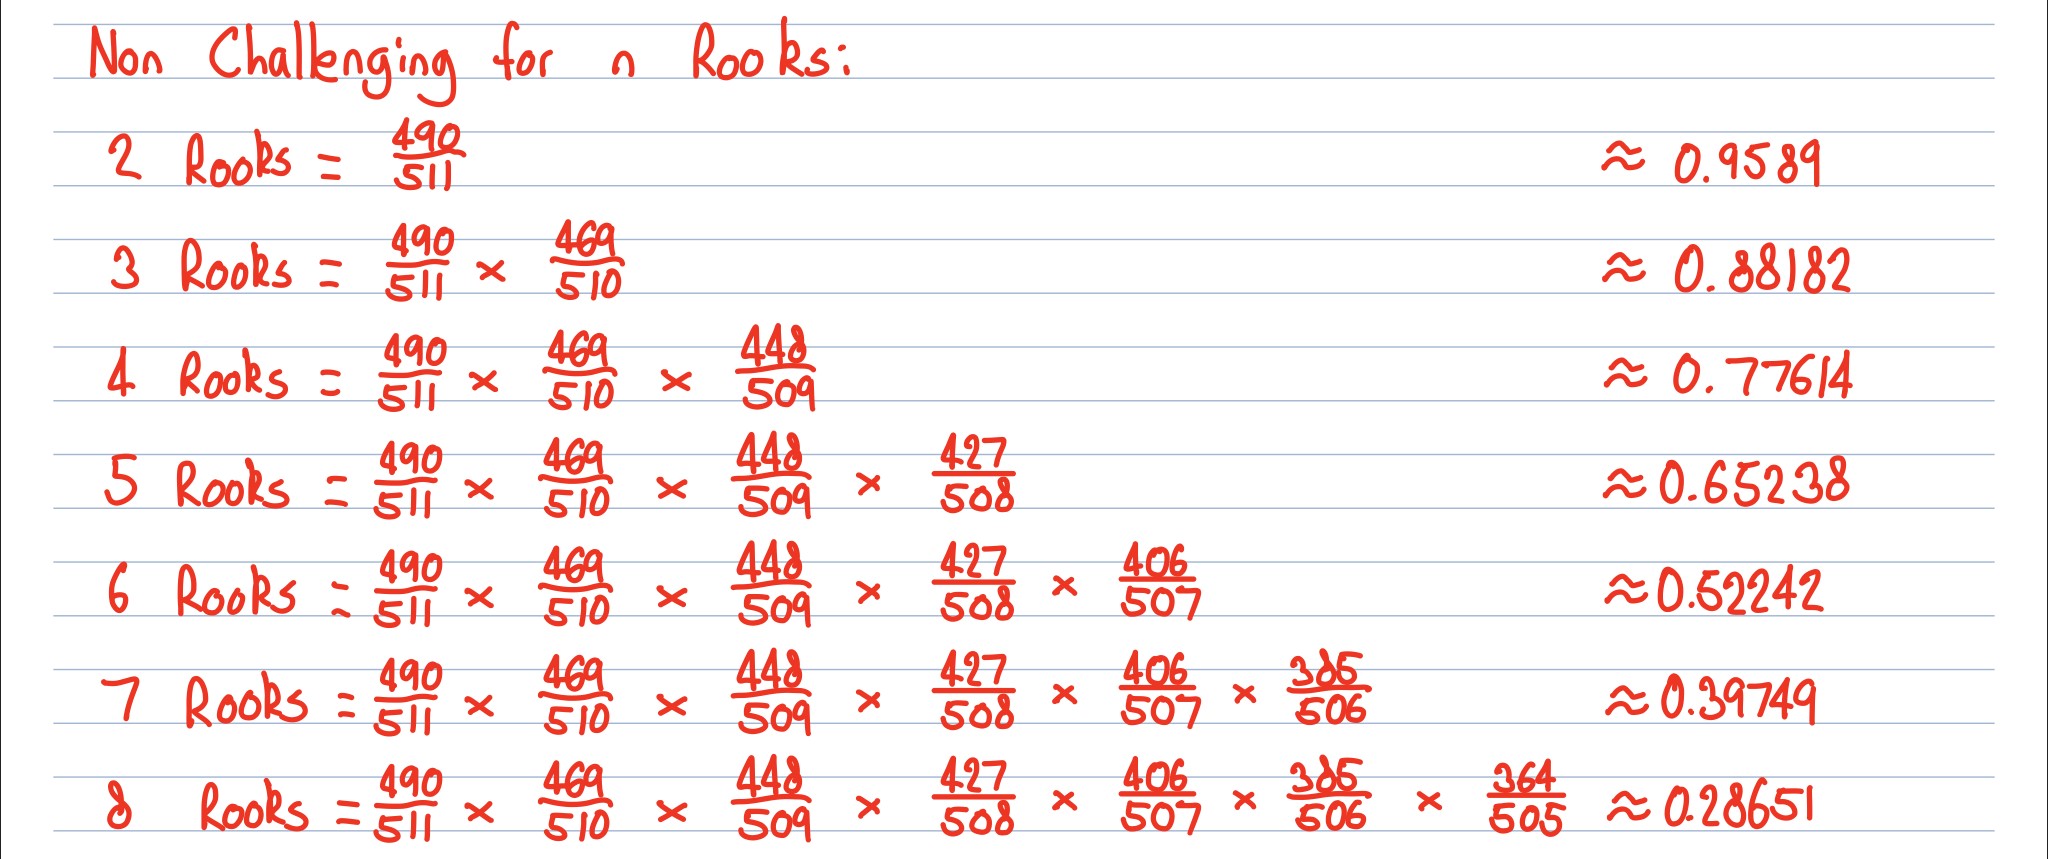 Non Challenging for n Rooks:
2 Rooks = 490/511 ≈ 0.9589
3 Rooks = 490/511 × 469/510 ≈ 0.88182
4 Rooks = 490/511 × 469/510 × 448/509 ≈ 0.77614
5 Rooks = 490/511 × 469/510 × 448/509 × 427/508 ≈ 0.65238
6 Rooks = 490/511 × 469/510 × 448/509 × 427/508 × 406/507 ≈ 0.52242
7 Rooks = 490/511 × 469/510 × 448/509 × 427/508 × 406/507 × 385/506 ≈ 0.39749
8 Rooks = 490/511 × 469/510 × 448/509 × 427/508 × 406/507 × 385/506 × 364/505 ≈ 0.28651